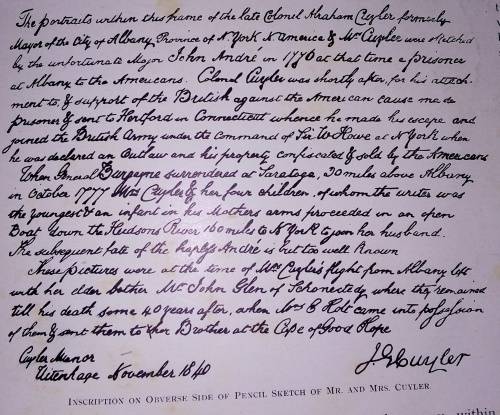 The portraits within this frame of the late Colonel Abraham Cuyler formerly
Mayor of the City of Albany Province of N York N America & Mrs Cuyler were sketched
by the unfortunate Major John André in 1776 at that time a prisoner
at Albany to the Americans. Colonel Cuyler was shortly after, for his attach-
ment to, & support of the British against the American cause made
prisoner & sent to Hertford in Connecticut whence he made his escape and
joined the British Army under the command of Sir W Howe at N York when
he was declared an Outlaw and his property confiscated & sold by the Americans
When General Burgoyne surrendered at Saratoga, 30 miles above Albany
in October 1777 Mrs Cuyler & her four children, of whom the writer was
the youngest & an infant in his Mothers arms proceeded in an open
Boat down the Hudsons River 160 miles to N York to join her husband.
The subsequent fate of the hapless André is but too well known
These pictures were at the time of Mrs Cuyler's flight from Albany left
with her elder brother Mr John Glen of Schonectedy where they remained
till his death some 40 years after, when Mrs E Holt came into possession
of them & sent them to her Brother at the Cape of Good Hope
Cuyler Manor
Uitenhage November 1840
J. G. Cuyler
INSCRIPTION ON OBVERSE SIDE OF PENCIL SKETCH OF MR. AND MRS. CUYLER.
within